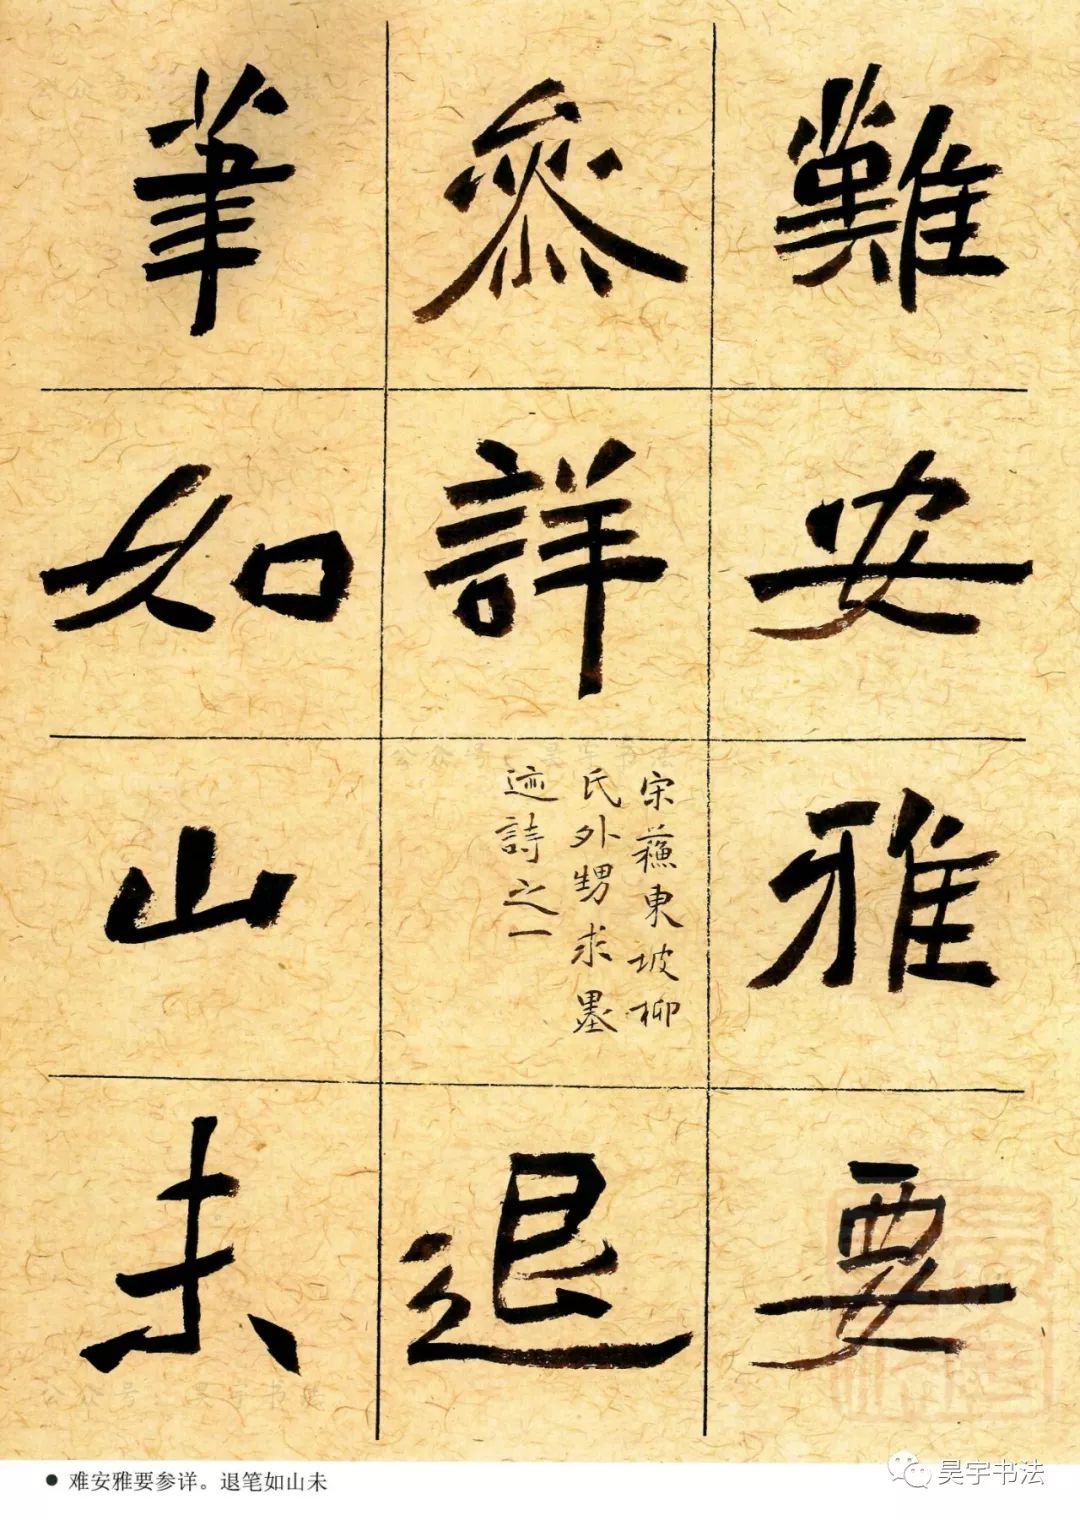 難安雅要
參詳
宋蘇東坡柳
氏外甥求墨
迹詩之一
退
筆如山未
● 难安雅要参详。退笔如山未
昊宇书法
公众号 昊宇书法